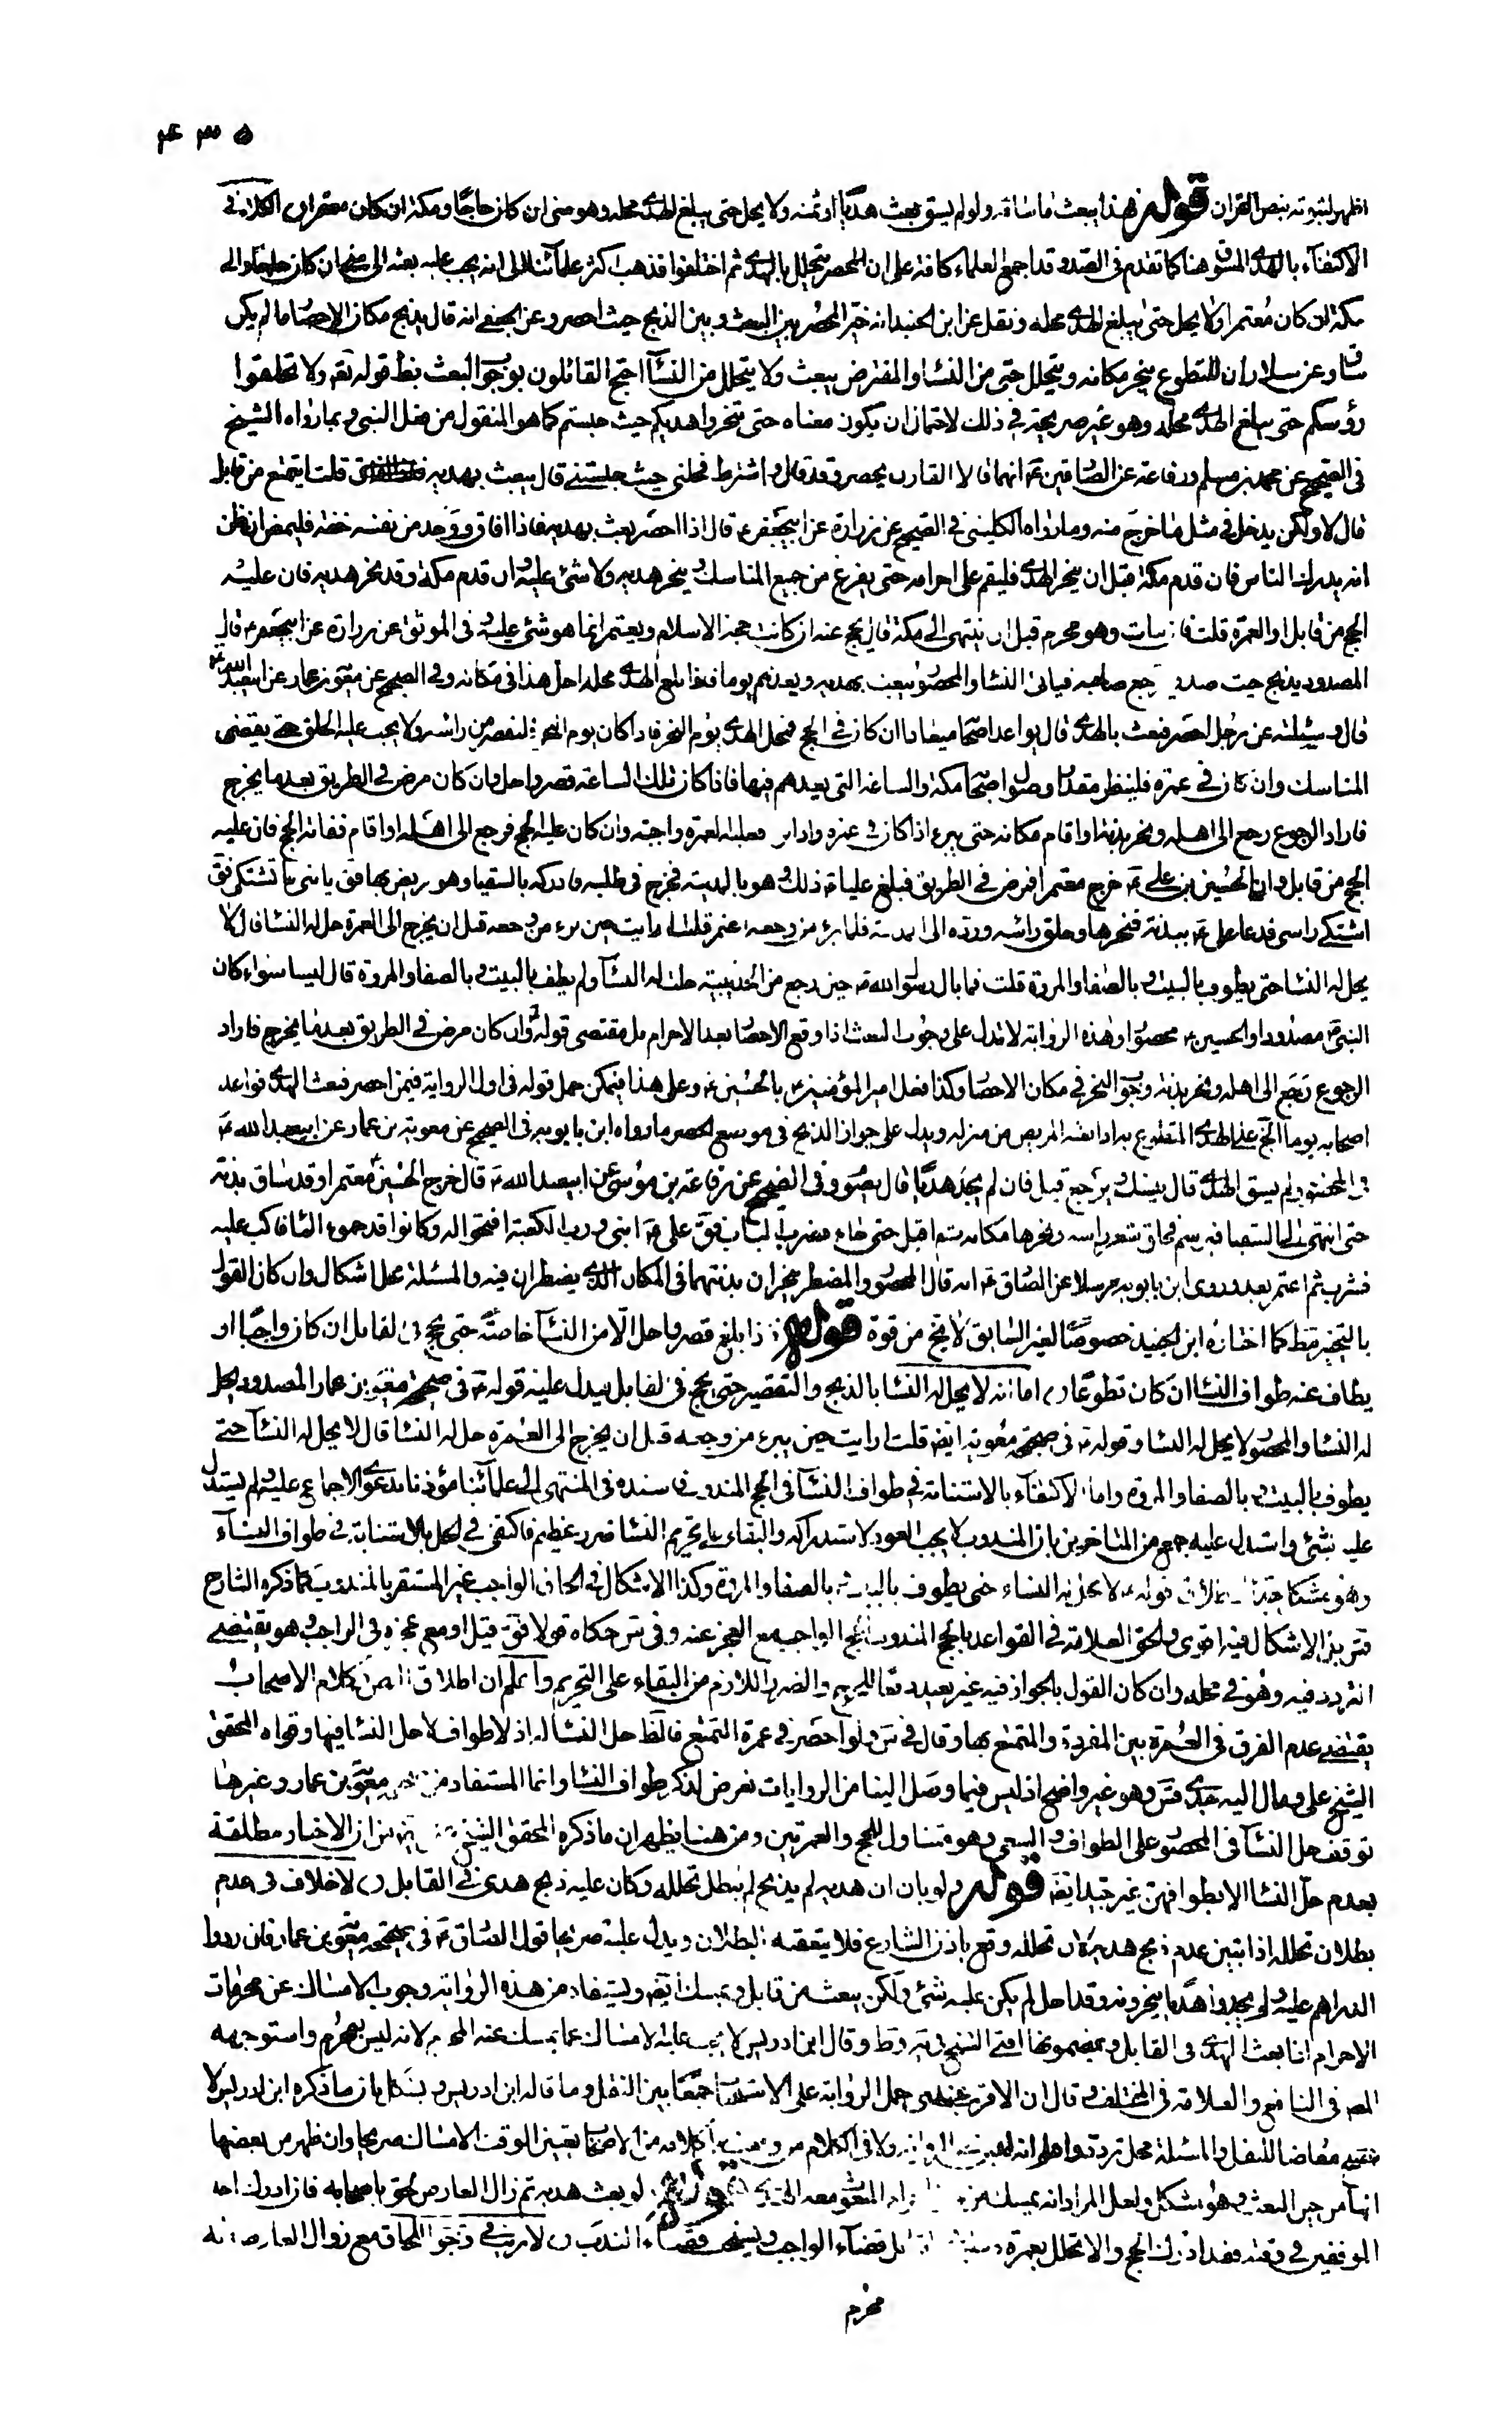 ٥ ٣ ٤
اظهر لثبوته بنص القران قوله فهذا يبعث ما ساقه ولو لم يسق بعث هديا او ثمنه ولا يحل حتى يبلغ الهدى محله وهو منى ان كان حاجا ومكة ان كان معتمرا الكلام في
الاكتفاء بالهدى المسوق هنا كما تقدم في الصد وقد اجمع العلماء كافة على ان المحصر يتحلل بالهدى ثم اختلفوا فذهب اكثر علمائنا الى انه يجب عليه بعثه الى منى ان كان حاجا والى
مكة ان كان معتمرا ولا يحل حتى يبلغ الهدى محله ونقل عن ابن الجنيد انه خير المحصر بين البعث وبين الذبح حيث احصر وعن الجعفي انه قال يذبح مكان الاحصار ما لم يكن
ساق وعن سلار ان المتطوع ينحر مكانه ويتحلل حتى من النساء والمفترض يبعث ولا يتحلل من النساء احتج القائلون بوجوب البعث بظ قوله تعم ولا تحلقوا
رؤسكم حتى يبلغ الهدى محله وهو غير صريحة في ذلك لاحتمال ان يكون معناه حتى تنحروا هديكم حيث حبستم كما هو المنقول من فعل النبي وبما رواه الشيخ
في الصحيح عن محمد بن مسلم ورفاعة عن الصادقين ع انهما قالا القارن يحصر وقد قال واشترط فحلني حيث حبستني قال يبعث بهديه قلت ايتمتع من قابل
قال لا ولكن يدخل في مثل ما خرج منه وما رواه الكليني في الصحيح عن زرارة عن ابيجعفر ع قال اذا احصر بعث بهديه فاذا افاق ووجد من نفسه خفة فليمض ان ظن
انه يدرك الناس فان قدم مكة قبل ان ينحر الهدى فليقم على احرامه حتى يفرغ من جميع المناسك وينحر هديه ولا شئ عليه وان قدم مكة وقد نحر هديه فان عليه
الحج من قابل او العمرة قلت فان مات وهو محرم قبل ان ينتهى الى مكة قال يحج عنه ان كانت حجة الاسلام ويعتمر انما هو شئ عليه وفى الموثق عن زرارة عن ابيجعفر ع قال
المصدود يذبح حيث صد ويرجع صاحبه فياتى النساء والمحصور يبعث بهديه ويعدهم يوما فاذا بلغ الهدى محله احل هذا في مكانه وفي الصحيح عن معوية بن عمار عن ابيعبد الله ع
قال وسئلته عن رجل احصر فبعث بالهدى قال يواعد اصحابه ميعادا ان كان في الحج فمحل الهدى يوم النحر فاذا كان يوم النحر فليقصر من راسه ولا يجب عليه الحلق حتى يقضى
المناسك وان كان في عمرة فلينظر مقدار دخول اصحابه مكة والساعة التى يعدهم فيها فاذا كان تلك الساعة قصر واحل وان كان مرض في الطريق بعد ما يخرج
فاراد الرجوع رجع الى اهله ونحر بدنة او اقام مكانه حتى يبرء اذا كان في عمرة واذا برء فعليه العمرة واجبة وان كان عليه الحج فرجع الى اهله او اقام ففاته الحج فان عليه
الحج من قابل وان الحسين بن علي ع خرج معتمرا فمرض في الطريق فبلغ عليا ع ذلك وهو بالمدينة فخرج في طلبه فادركه بالسقيا وهو مريض بها فق يا بنى ما تشتكى فق
اشتكى راسى فدعا على ع ببدنة فنحرها وحلق راسه ورده الى المدينة فلما برئ من وجعه اعتمر قلت ارايت حين برء من وجعه قبل ان يخرج الى العمرة حل له النساء قال لا
يحل له النساء حتى يطوف بالبيت وبالصفا والمروة قلت فما بال رسول الله ص حين رجع من الحديبية حلت له النساء ولم يطف بالبيت وبالصفا والمروة قال ليسا سواء كان
النبى ص مصدودا والحسين ع محصورا وهذه الرواية لا تدل على وجوب البعث اذا وقع الاحصار بعد الاحرام بل مقتضى قوله وان كان مرض في الطريق بعد ما يخرج فاراد
الرجوع رجع الى اهله ونحر بدنة وجوب النحر في مكان الاحصار وكذا فعل امير المؤمنين ع بالحسين ع وعلى هذا فيمكن حمل قوله في اول الرواية فيمن احصر فبعث الهدى فواعد
اصحابه يوما الخ على الهدى المتطوع به اذا بعثه المريض من منزله ويدل على جواز الذبح في موضع الحصر ما رواه ابن بابويه في الصحيح عن معوية بن عمار عن ابيعبد الله ع
في المحصور ولم يسق الهدى قال ينسك ويرجع قيل فان لم يجد هديا قال يصوم وفي الصحيح عن رفاعة بن موسى عن ابيعبد الله ع قال خرج الحسين ع معتمرا وقد ساق بدنة
حتى انتهى الى السقيا فبرسم فحلق شعر راسه ونحرها مكانه ثم اقبل حتى جاء فضرب الباب فق على ع ابنى ورب الكعبة افتحوا له وكانوا قد حموا الماء فاكب عليه
فشرب ثم اعتمر بعد وروى ابن بابويه مرسلا عن الصادق ع انه قال المحصور والمضطر ينحران بدنتهما في المكان الذى يضطران فيه والمسئلة محل اشكال وان كان القول
بالتخيير مط كما اختاره ابن الجنيد خصوصا لغير السائق لا يخ من قوة قوله فاذا بلغ قصر واحل الا من النساء خاصة حتى يحج في القابل ان كان واجبا او
يطاف عنه طواف النساء ان كان تطوعا اما انه لا يحل له النساء بالذبح والتقصير حتى يحج في القابل فيدل عليه قوله ع في صحيحة معوية بن عمار المصدود يحل
له النساء والمحصور لا يحل له النساء وقوله ع في صحيحة معوية ايضا قلت ارايت حين برء من وجعه قبل ان يخرج الى العمرة حل له النساء قال لا يحل له النساء حتى
يطوف بالبيت وبالصفا والمروة واما الاكتفاء بالاستنابة في طواف النساء في الحج المندوب فاسنده في المنتهى الى علمائنا مؤذنا بدعوى الاجماع عليه ولم يستدل
عليه بشئ واستدل عليه جمع من المتاخرين بان المندوب لا يجب العود لاستدراكه والبقاء على تحريم النساء ضرر عظيم فاكتفى في الحل بالاستنابة في طواف النساء
وهو مشكل جدا لاطلاق قوله ع لا يحل له النساء حتى يطوف بالبيت وبالصفا والمروة وكذا الاشكال في الحاق الواجب غير المستقر بالمندوب كما ذكره الشارح
قده بل الاشكال فيه اقوى والحق العلامة في القواعد بالحج المندوب الحج الواجب مع العجز عنه وفى س حكاه قولا فق قيل او مع عجزه في الواجب وهو يقتضى
التردد فيه وهو في محله وان كان القول بالجواز فيه غير بعيد دفعا للحرج والضرر اللازم من البقاء على التحريم واعلم ان اطلاق النص وكلام الاصحاب
يقتضى عدم الفرق في العمرة بين المفردة والمتمتع بها وقال في س ولو احصر في عمرة التمتع فالظ حل النساء له اذ لا طواف لاجل النساء فيها وقواه المحقق
الشيخ على ومال اليه جدى قده وهو غير واضح اذ ليس فيما وصل الينا من الروايات تعرض لذكر طواف النساء وانما المستفاد من صحيحة معوية بن عمار وغيرها
توقف حل النساء في المحصور على الطواف والسعى وهو متناول للحج والعمرتين ومن هنا يظهر ان ما ذكره المحقق الشيخ على من ان الاخبار مطلقة
بعدم حل النساء الا بطوافهن غير جيد ايضا قوله ولو بان ان هديه لم يذبح لم يبطل تحلله وكان عليه ذبح هدى في القابل لا خلاف في عدم
بطلان تحلله اذا تبين عدم ذبح هديه لان تحلله وقع باذن الشارع فلا يتعقبه البطلان ويدل عليه صريحا قول الصادق ع في صحيحة معوية بن عمار فان ردوا
الدراهم عليه ولم يجدوا هديا ينحرونه وقد احل لم يكن عليه شئ ولكن يبعث من قابل ويمسك ايضا ويستفاد من هذه الرواية وجوب الامساك عن محرمات
الاحرام اذا بعث الهدى في القابل وبمضمونها افتى الشيخ في يه وط وقال ابن ادريس لا يجب عليه الامساك عما يمسك عنه المحرم لانه ليس بمحرم واستوجهه
المصه في النافع والعلامة في المختلف وقال ان الاقرب عندى حمل الرواية على الاستحباب جمعا بين النقل وما قاله ابن ادريس ويشكل بان ما ذكره ابن ادريس لا
معارضا للنقل والمسئلة محل تردد واعلم انه ليس في الرواية ولا في كلام من الاصحاب تعيين الوقت الامساك صريحا وان ظهر من بعضها
انه من حين البعث وهو مشكل ولعل المراد انه يمسك من المبعوث معه قوله لو بعث هديه ثم زال العارض لحق باصحابه فان ادرك احد
الموقفين في وقته فقد ادرك الحج والا تحلل بعمرة قضاء الواجب ويستحب قضاء الندب لا ريب في وجوب اللحاق مع زوال العارض لانه
محرم